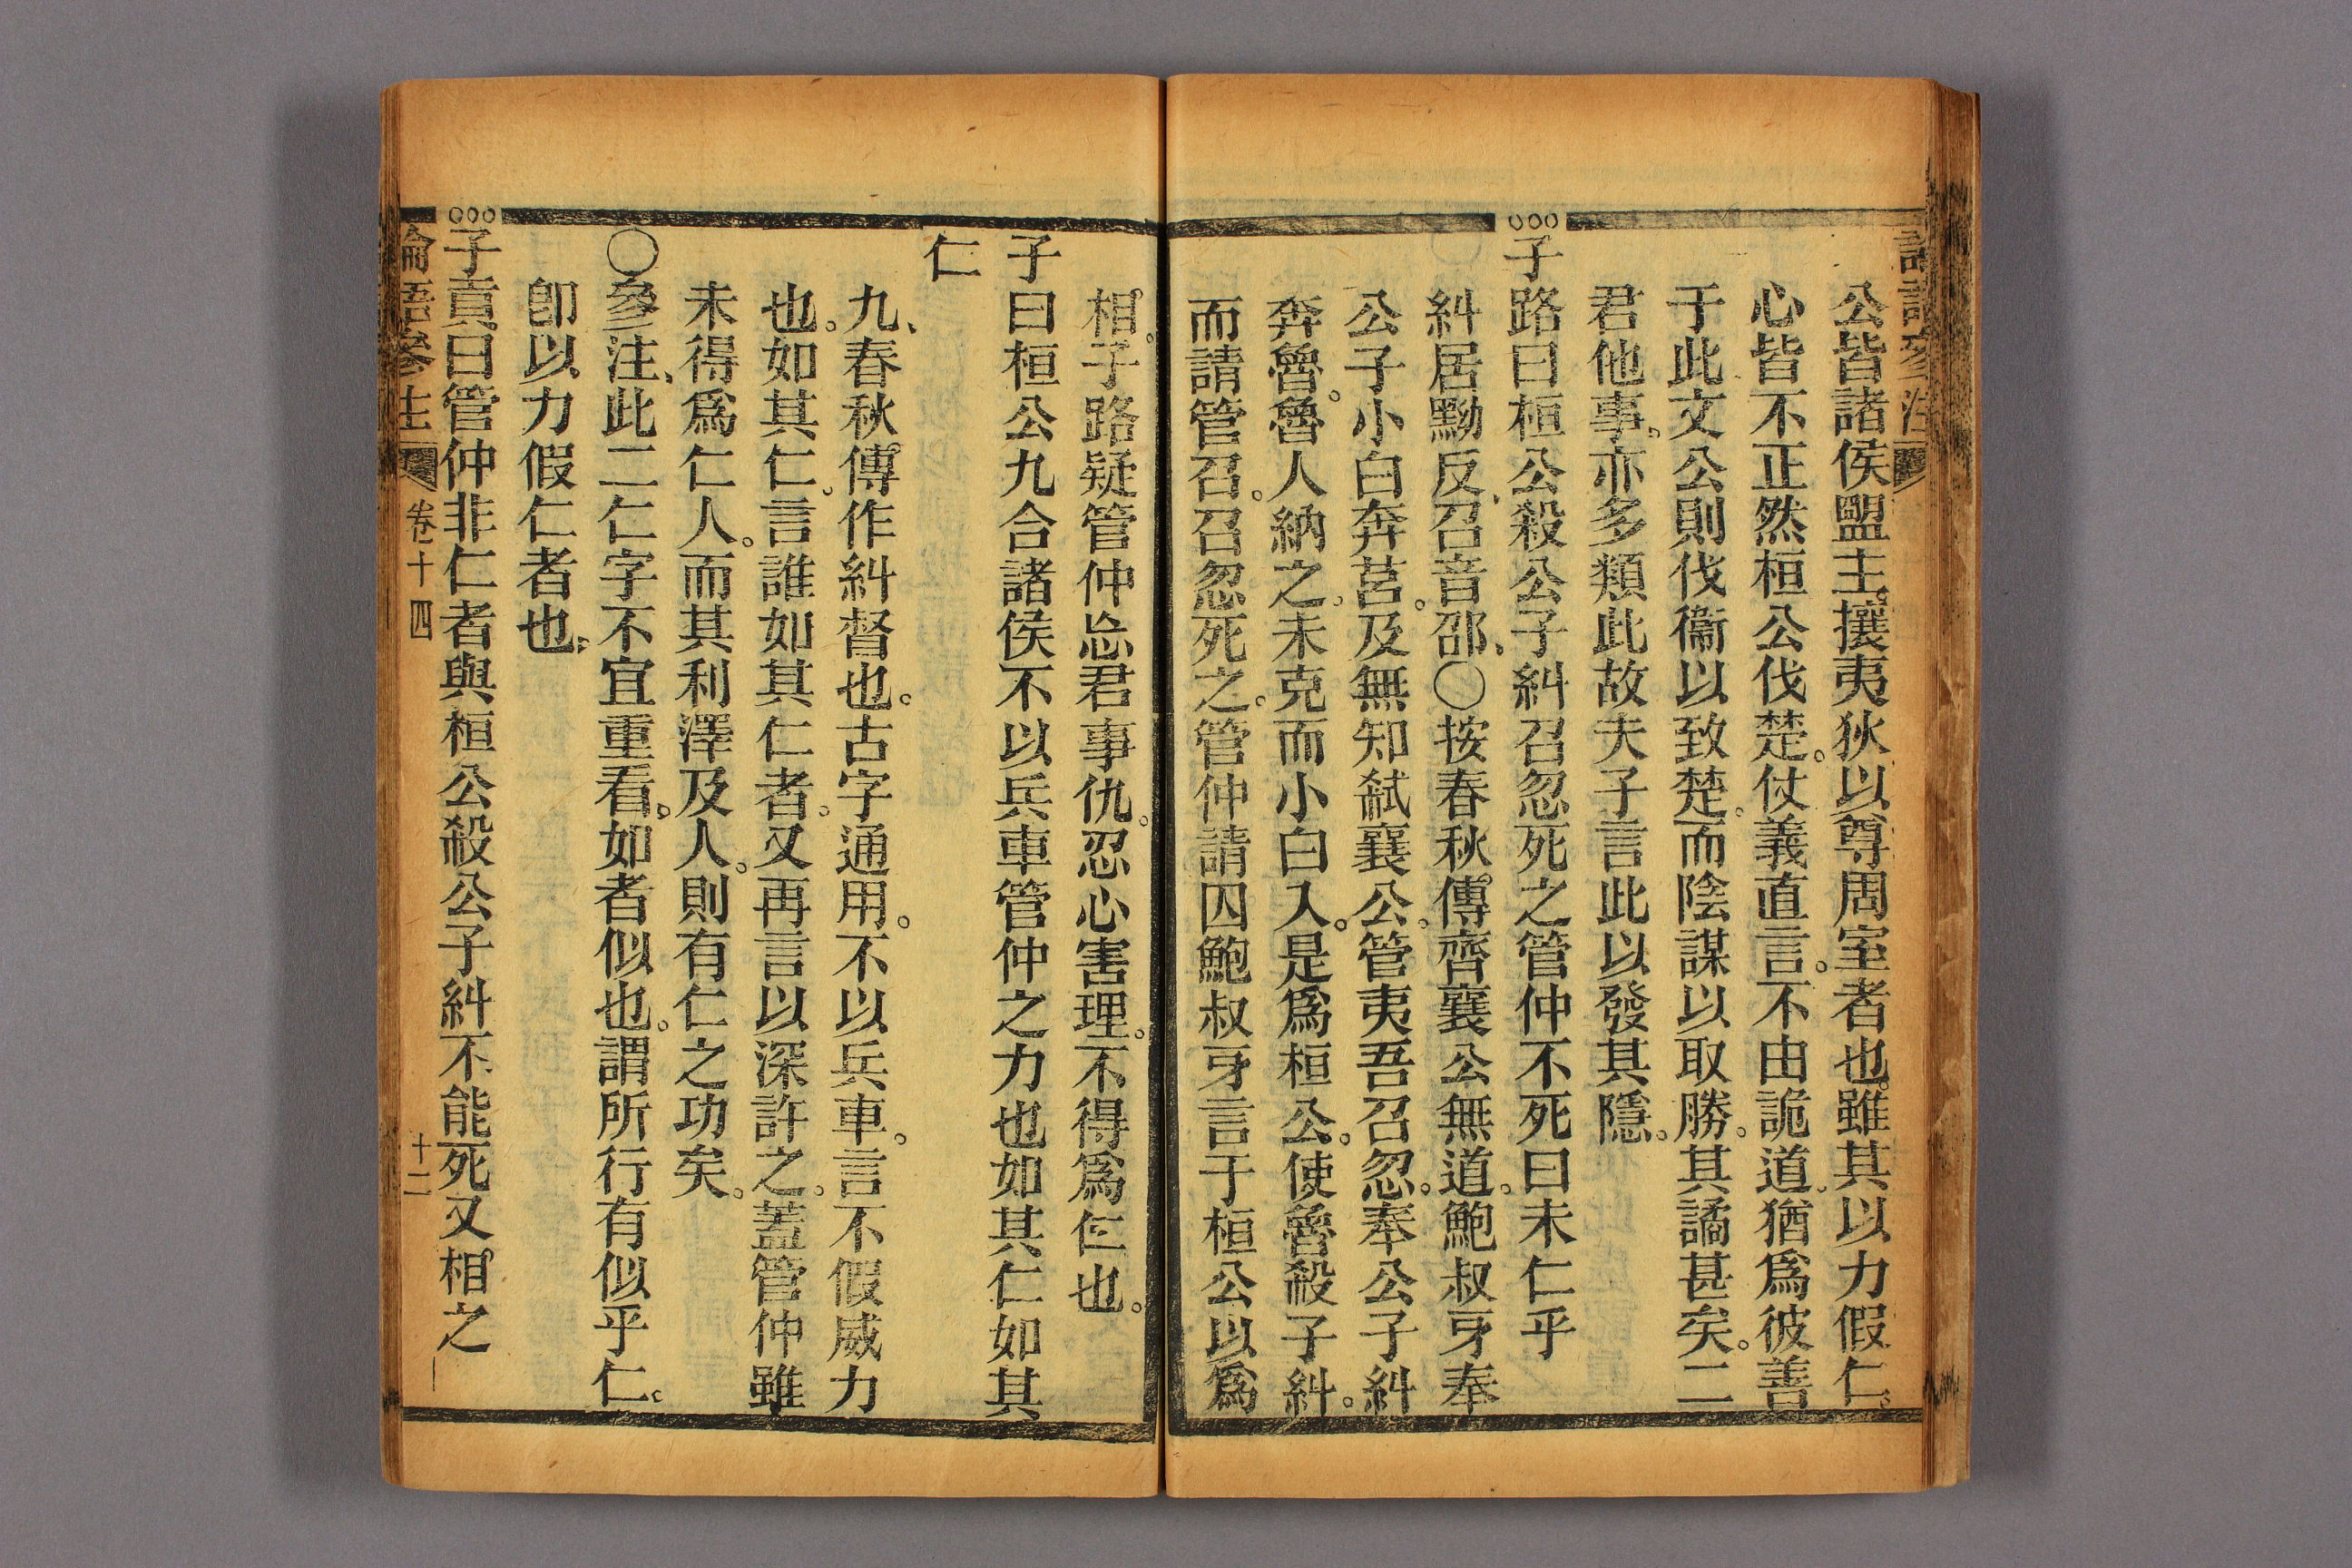 公皆諸侯盟主。攘夷狄以尊周室者也。雖其以力假仁。
心皆不正然桓公伐楚。仗義直言。不由詭道。猶爲彼善
于此文公則伐衞以致楚。而陰謀以取勝。其譎甚矣。二
君他事。亦多類此故夫子言此以發其隱。
子路曰桓公殺公子糾召忽死之管仲不死曰未仁乎
糾居黝反、召音邵、○按春秋傳齊襄公無道。鮑叔牙奉
公子小白奔莒。及無知弑襄公。管夷吾召忽。奉公子糾
奔魯。魯人納之。未克而小白入。是爲桓公。使魯殺子糾。
而請管召。召忽死之。管仲請囚鮑叔牙言于桓公以爲
相。子路疑管仲忘君事仇。忍心害理。不得爲仁也。
子曰桓公九合諸侯不以兵車管仲之力也如其仁如其
仁
九、春秋傳作糾督也。古字通用。不以兵車。言不假威力
也。如其仁。言誰如其仁者。又再言以深許之。蓋管仲雖
未得爲仁人。而其利澤及人。則有仁之功矣。
○參注、此二仁字不宜重看。如者似也。謂所行有似乎仁。
卽以力假仁者也。
子貢曰管仲非仁者與桓公殺公子糾不能死又相之
論語參注 卷十四 十二